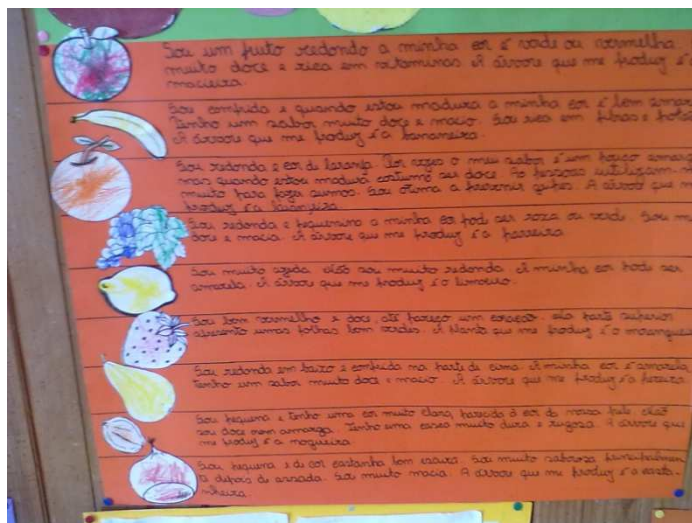 Sou um fruto redondo a minha cor é verde ou vermelha.
muito doce e rica em vitaminas. A árvore que me produz é a
macieira.
Sou comprida e quando estou madura a minha cor é bem amar
Tenho um sabor muito doce e macio. Sou rica em fibras e
A árvore que me produz é a bananeira.
Sou redonda e cor de laranja. Por vezes o meu sabor é um pouco
mas quando estou madura costumo ser doce. As pessoas utilizam-m
muito para fazer sumos. Sou ótima a prevenir gripes. A árvore que m
produz é a laranjeira.
Sou redonda e pequenina a minha cor pode ser roxa ou verde. Sou m
doce e macia. A árvore que me produz é a parreira.
Sou muito azeda. Não sou muito redonda. A minha cor pode ser
amarela. A árvore que me produz é o limoeiro.
Sou bem vermelho e doce, até pareço um coração. Na parte superior
apresento umas folhas bem verdes. A planta que me produz é o morangue
Sou redonda em baixo e comprida na parte de cima. A minha cor é amarela.
Tenho um sabor muito doce e macio. A árvore que me produz é a pereira.
Sou pequena e tenho uma cor muito clara, parecida à cor da nossa pele. Não
sou doce nem amarga. Tenho uma casca muito dura e rugosa. A árvore que
me produz é a nogueira.
Sou pequena e de cor castanha bem escura. Sou muito saborosa
depois de assada. Sou muito macia. A árvore que me produz é o casta-
nheira.